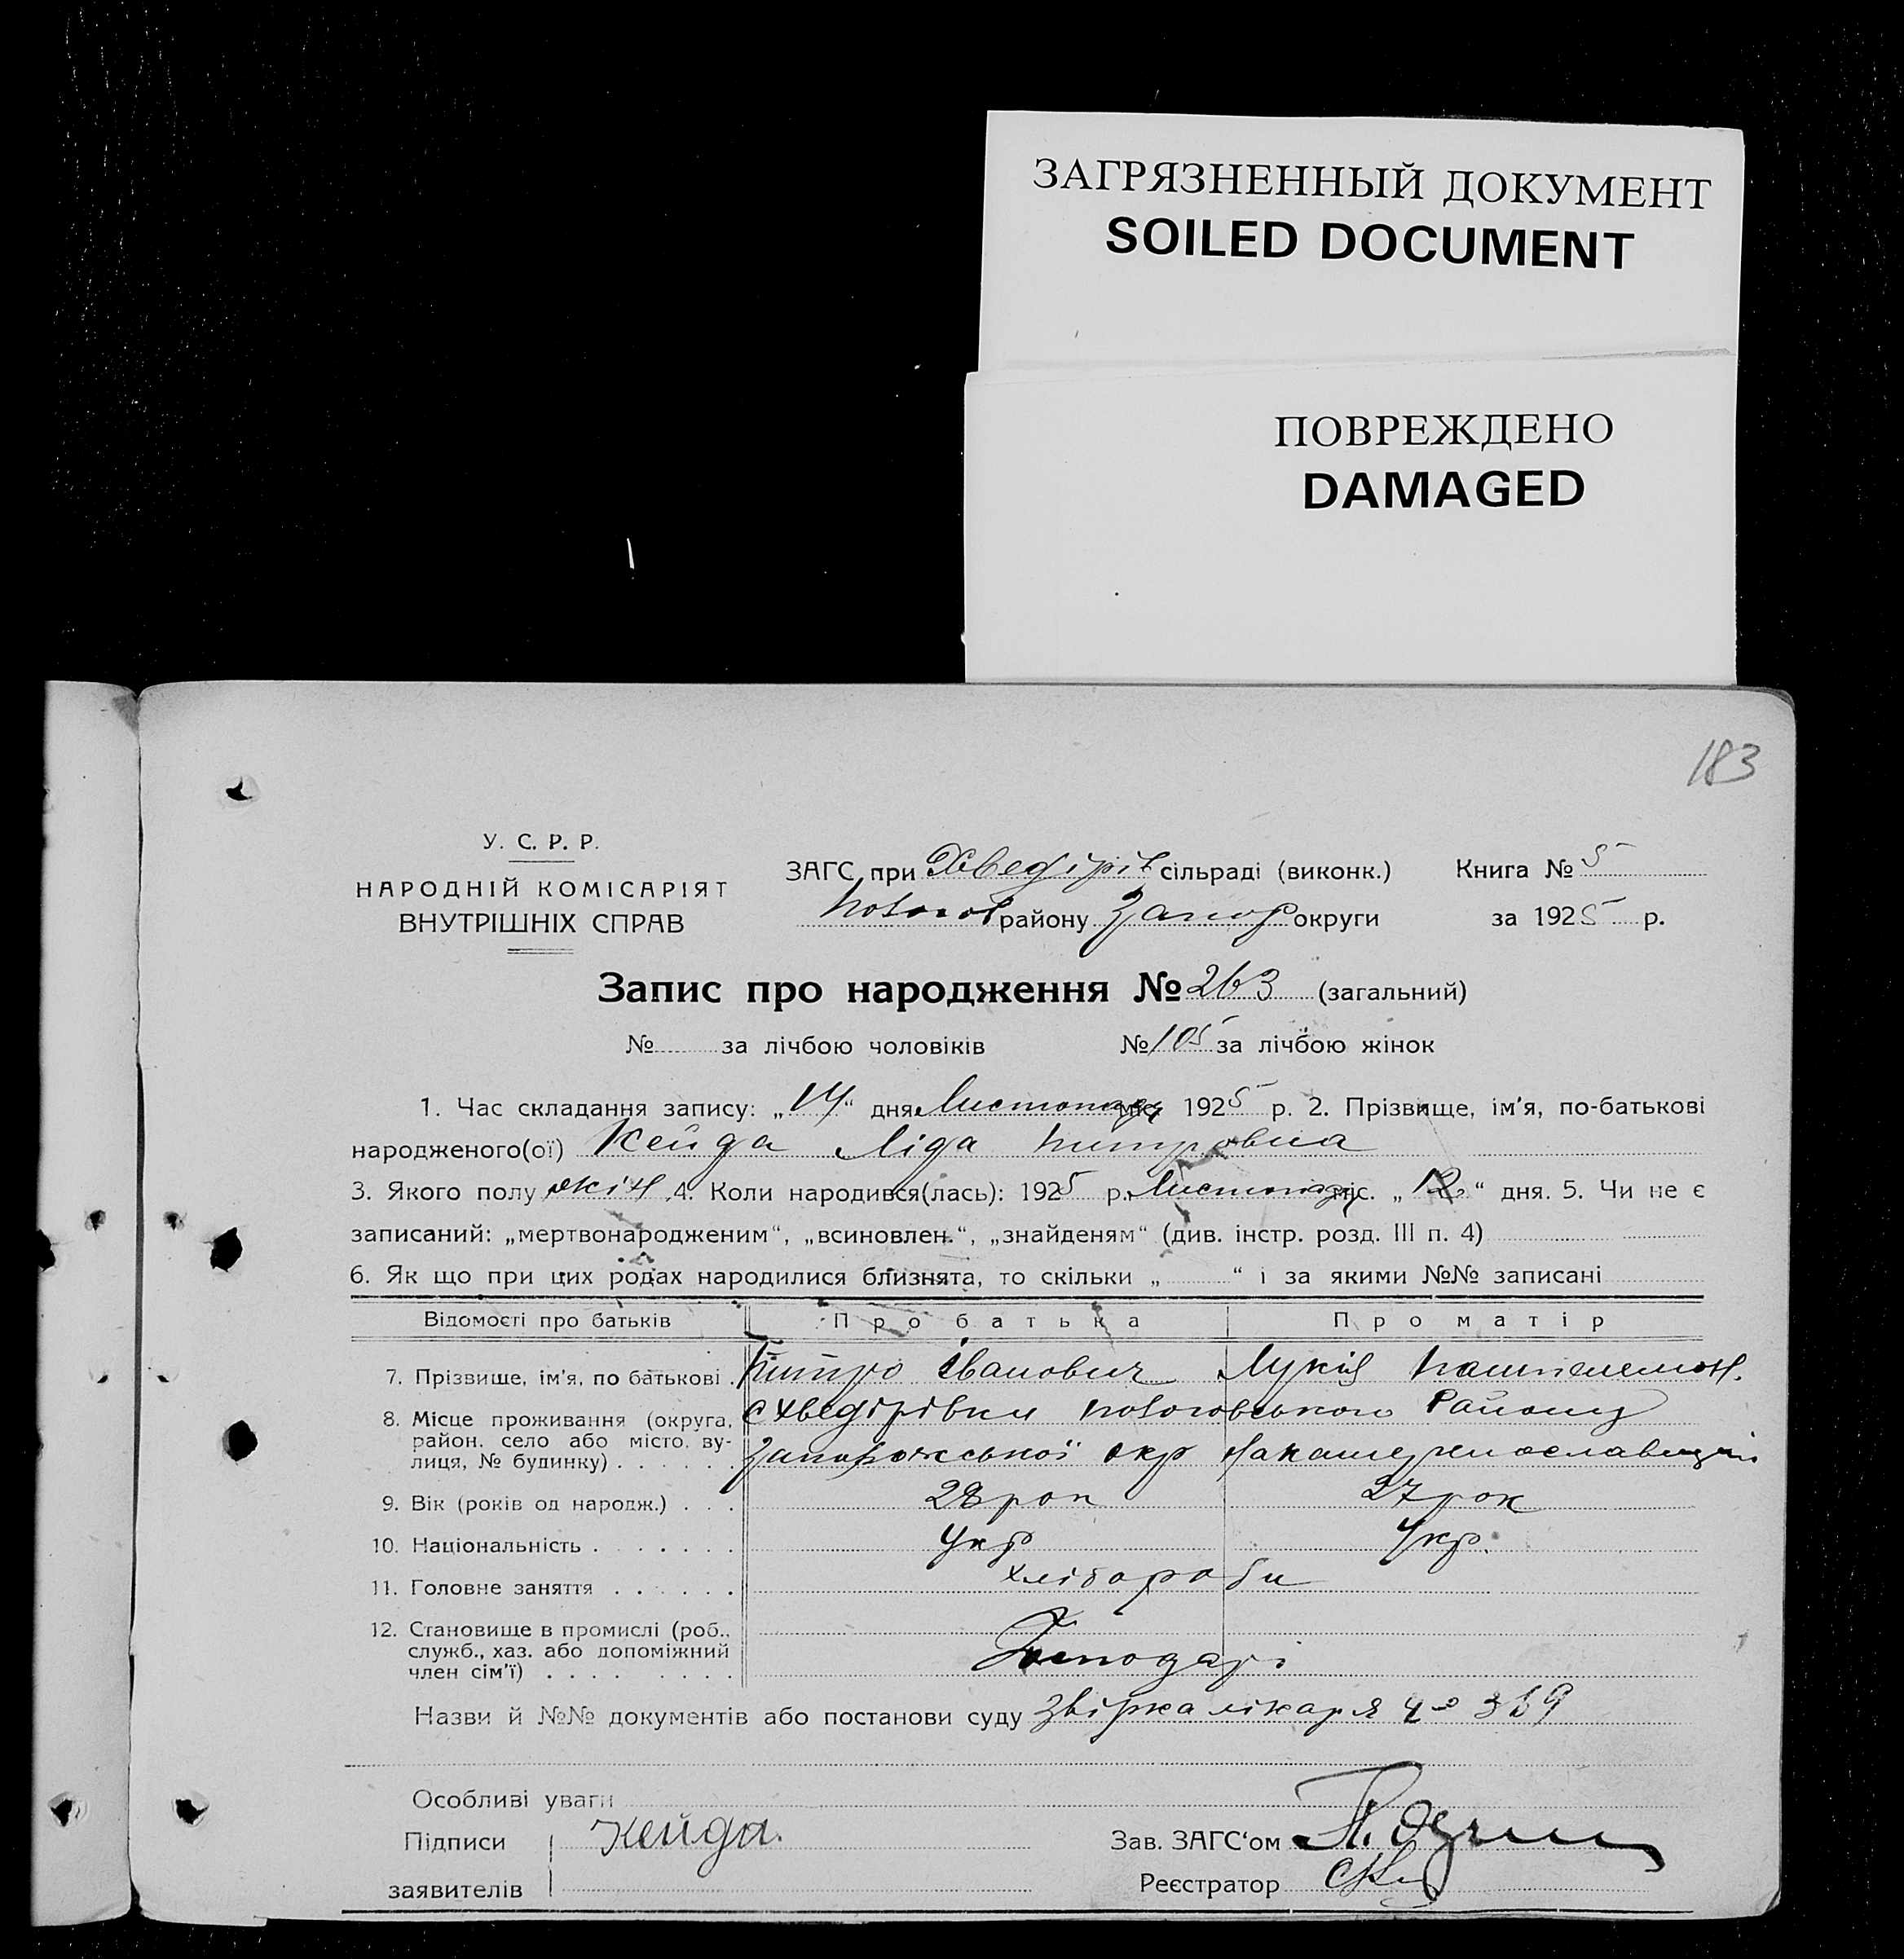 ЗАГРЯЗНЕННЫЙ ДОКУМЕНТ
SOILED DOCUMENT
ПОВРЕЖДЕНО
DAMAGED
183
У. С. Р. Р.
НАРОДНІЙ КОМІСАРІЯТ
ВНУТРІШНІХ СПРАВ
ЗАГС при Хведірів сільраді (виконк.) Книга № 5
району Запор округи за 1925 р.
Запис про народження № 263 (загальний)
№ за лічбою чоловіків № 105 за лічбою жінок
1. Час складання запису: „14“ дня Листопада міс. 1925 р. 2. Прізвище, ім'я, по-батькові
народженого(ої) Кейда Ліда Питровна
3. Якого полу жін 4. Коли народився(лась): 1925 р. Листопад міс. „ “ дня. 5. Чи не є
записаний: „мертвонародженим“, „всиновлен.“, „знайденям“ (див. інстр. розд. III п. 4)
6. Як що при цих родах народилися близнята, то скільки „ “ і за якими №№ записані
Відомості про батьків Про батька Про матір
7. Прізвище, ім'я, по батькові . Питро Іванович Лукія
8. Місце проживання (округа, с Хведірівки Района
район, село або місто, ву-
лиця, № будинку) . . . . . . Запорожської окр
9. Вік (років од народж.) . . . 28 рок 27 рок
10. Національність . . . . . . . Укр Укр.
11. Головне заняття . . . . . . хлібороби
12. Становище в промислі (роб.,
служб., хаз. або допоміжний Господарі
член сім'ї) . . . . . . . . .
Назви й №№ документів або постанови суду лікаря 359
Особливі уваги
Підписи Кейда. Зав. ЗАГС‘ом
заявителів Реєстратор